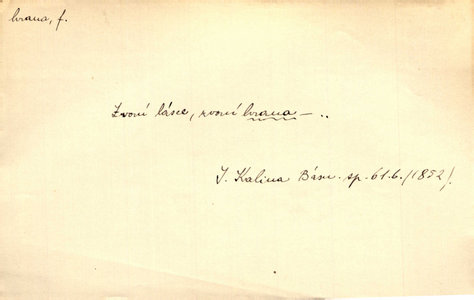 hrana, f.
Zvoní lásce, zvoní hrana – ..
J. Kalina Básn. sp. 61. b. (1852).